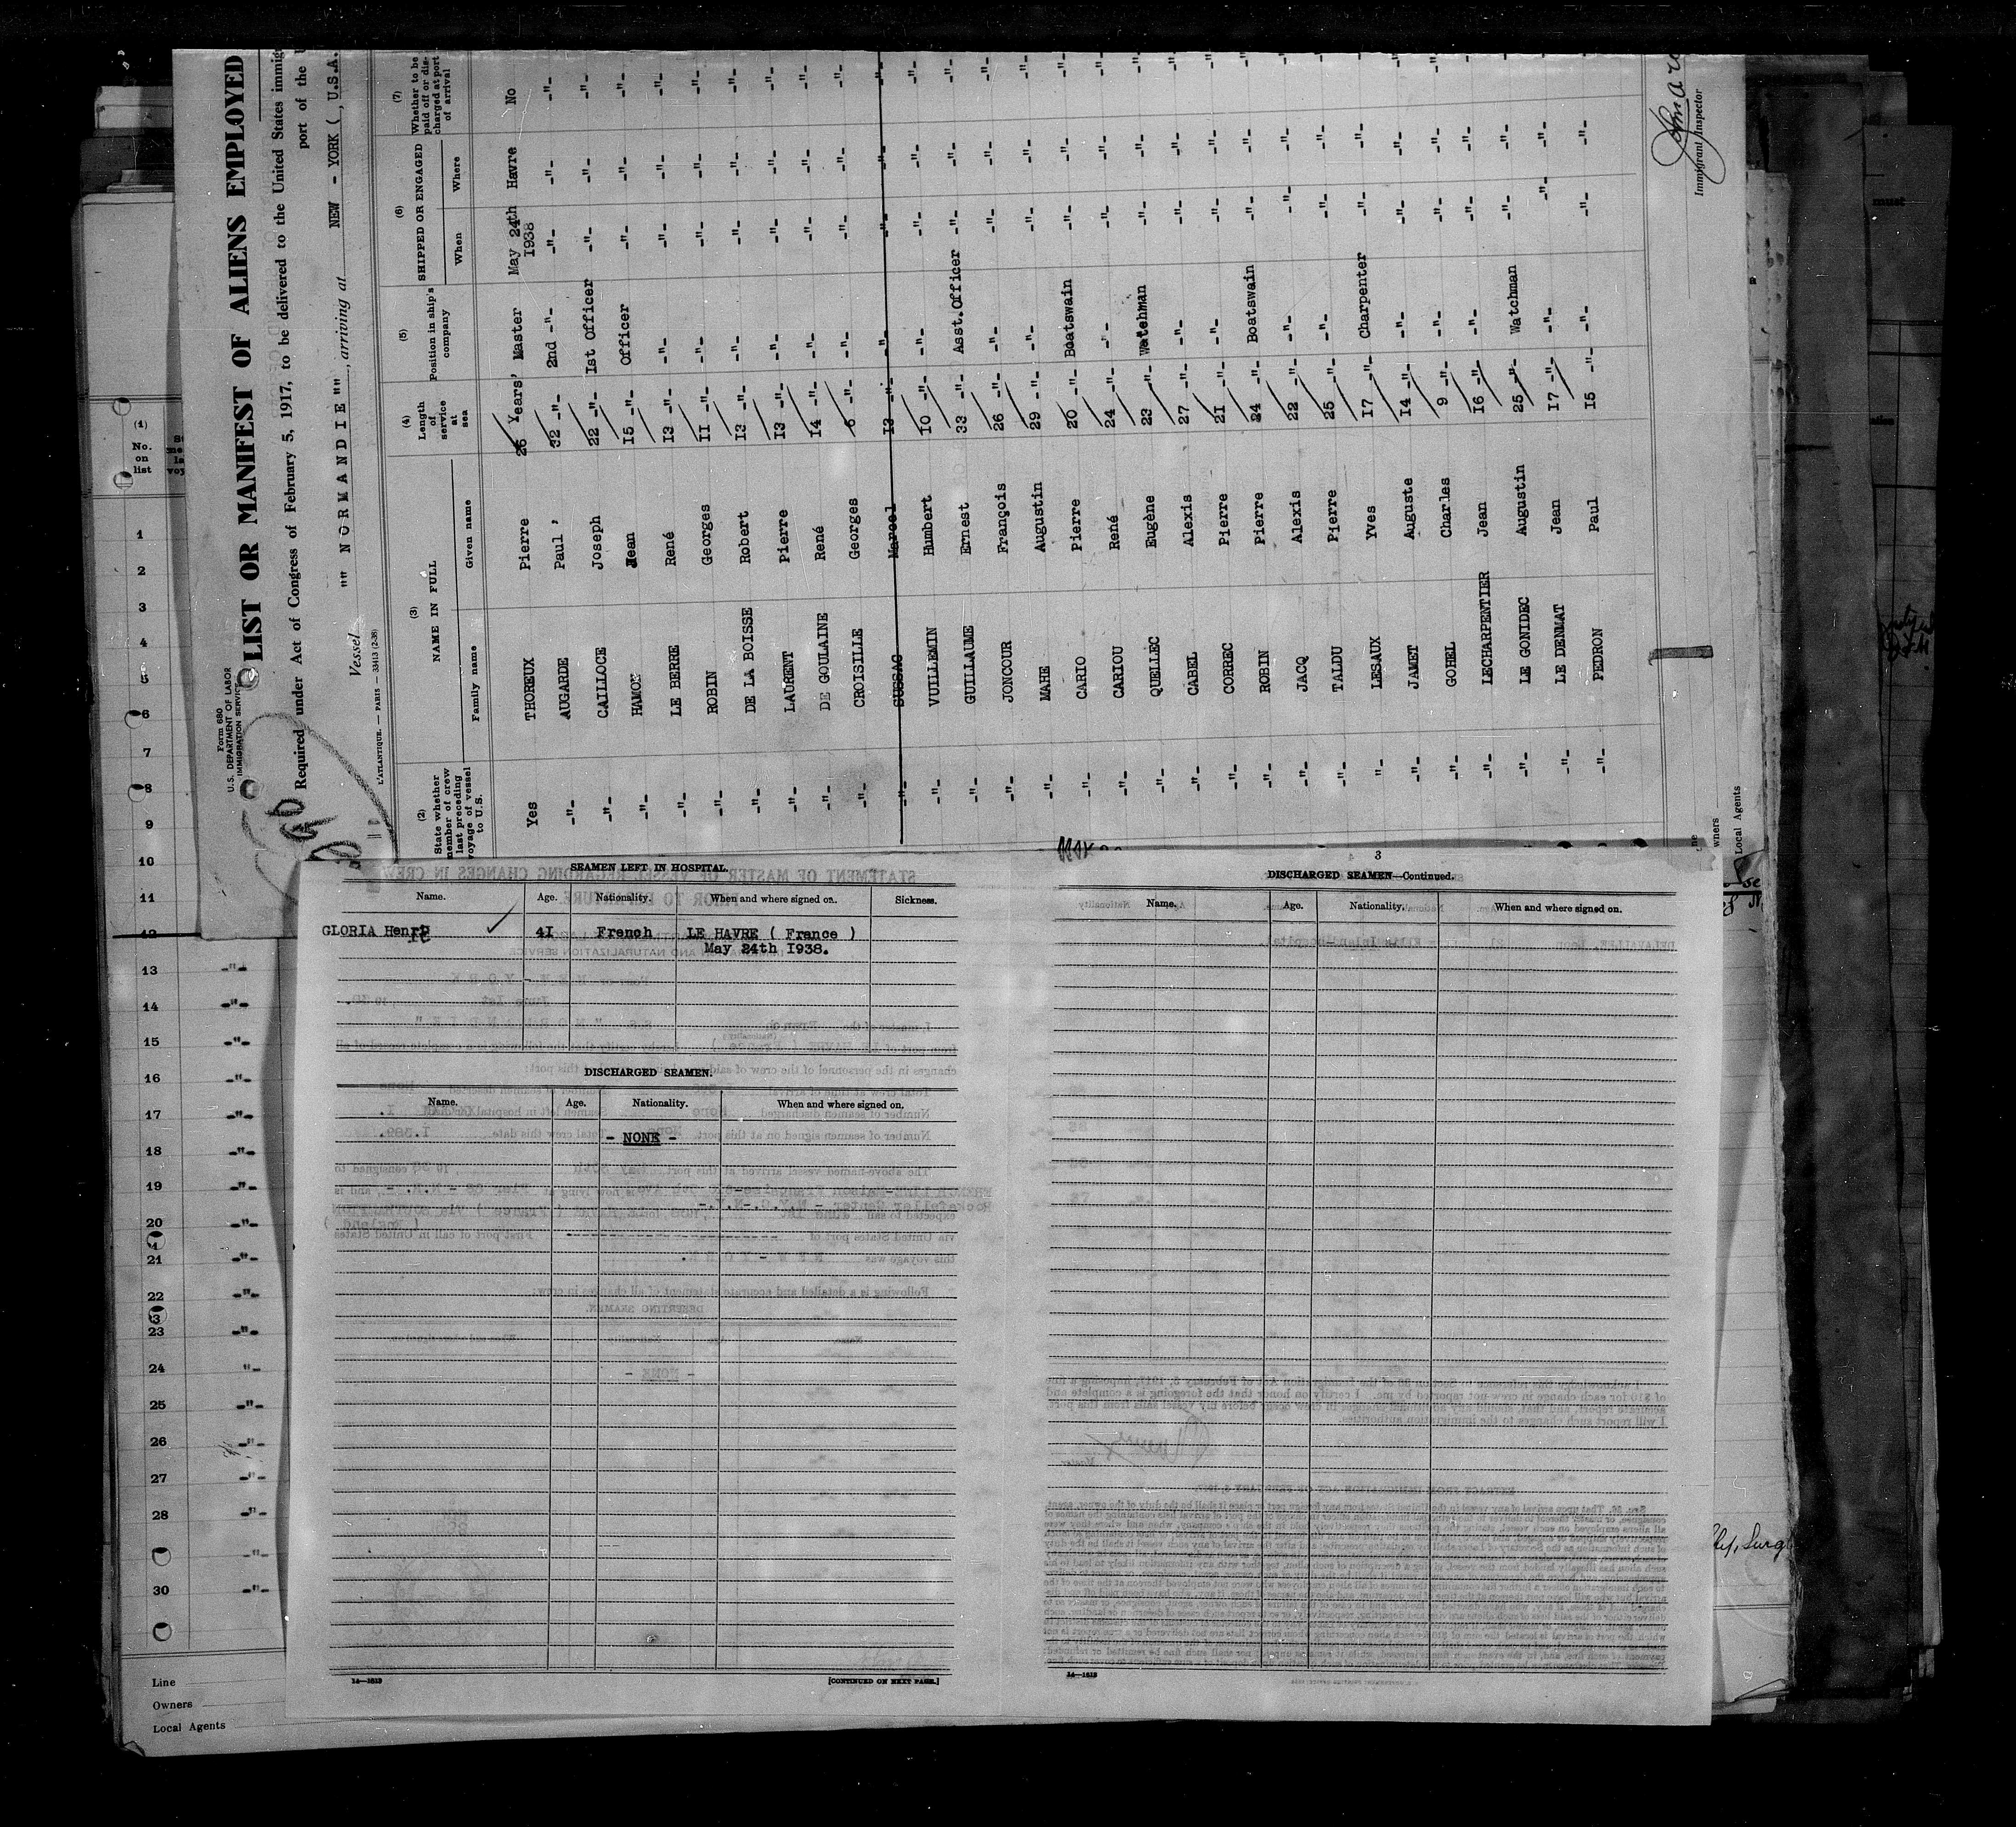 Form 680
U.S. DEPARTMENT OF LABOR
IMMIGRATION SERVICE
LIST OR MANIFEST OF ALIENS EMPLOYED
Required under Act of Congress of February 5, 1917, to be delivered to the United States immig
port of the
Vessel "" NORMANDIE "", arriving at NEW - YORK ( , U.S.A.
L'ATLANTIQUE. — PARIS — 33413 (2-38)
(2) (3) (4) (5) (6) (7)
State whether member of crew last preceding voyage of vessel to U.S. NAME IN FULL Length of service at sea Position in ship's company SHIPPED OR ENGAGED Whether to be paid off or discharged at port of arrival
Family name Given name When Where
Yes THOREUX Pierre 26 Years' Master May 24th 1938 Havre No
-"- AUGARDE Paul ' 32 -"- 2nd -"- -"- -"- -"-
-"- CAILLOCE Joseph 22 -"- 1st Officer -"- -"- -"-
-"- HAMON Jean 15 -"- Officer -"- -"- -"-
-"- LE BERRE René 13 -"- -"- -"- -"- -"-
-"- ROBIN Georges 11 -"- -"- -"- -"- -"-
-"- DE LA BOISSE Robert 13 -"- -"- -"- -"- -"-
-"- LAURENT Pierre 13 -"- -"- -"- -"- -"-
-"- DE GOULAINE René 14 -"- -"- -"- -"- -"-
-"- CROISILLE Georges 6 -"- -"- -"- -"- -"-
-"- SUSSAC Marcel 13 -"- -"- -"- -"- -"-
-"- VUILLEMIN Humbert 10 -"- -"- -"- -"- -"-
-"- GUILLAUME Ernest 33 -"- Asst.Officer -"- -"- -"-
-"- JONCOUR François 26 -"- -"- -"- -"- -"-
-"- MAHE Augustin 29 -"- -"- -"- -"- -"-
-"- CARIO Pierre 20 -"- Boatswain -"- -"- -"-
-"- CARIOU René 24 -"- -"- -"- -"- -"-
-"- QUELLEC Eugène 23 -"- Watchman -"- -"- -"-
-"- CABEL Alexis 27 -"- -"- -"- -"- -"-
-"- CORREC Pierre 21 -"- -"- -"- -"- -"-
-"- ROBIN Pierre 24 -"- Boatswain -"- -"- -"-
-"- JACQ Alexis 22 -"- -"- -"- -"- -"-
-"- TALDU Pierre 25 -"- -"- -"- -"- -"-
-"- LESAUX Yves 17 -"- Charpenter -"- -"- -"-
-"- JAMET Auguste 14 -"- -"- -"- -"- -"-
-"- GOHEL Charles 9 -"- -"- -"- -"- -"-
-"- LECHARPENTIER Jean 16 -"- -"- -"- -"- -"-
-"- LE GONIDEC Augustin 25 -"- Watchman -"- -"- -"-
-"- LE DENMAT Jean 17 -"- -"- -"- -"- -"-
-"- PEDRON Paul 15 -"- -"- -"- -"- -"-
Immigrant Inspector
owners
Local Agents
(1)
No.
on
list
1
2
3
4
5
6
7
8
9
10
11
12
13 -"-
14 -"-
15 -"-
16 -"-
17 -"-
18 -"-
19 -"-
20 -"-
21 -"-
22 -"-
23 -"-
24 -"-
25 -"-
26 -"-
27 -"-
28 -"-
-"-
30 -"-
Line
Owners
Local Agents
SEAMEN LEFT IN HOSPITAL.
Name. Age. Nationality. When and where signed on. Sickness.
GLORIA Henri 41 French LE HAVRE ( France )
May 24th 1938.
DISCHARGED SEAMEN.
Name. Age. Nationality. When and where signed on.
- NONE -
14—1813 [CONTINUED ON NEXT PAGE.]
3
DISCHARGED SEAMEN—Continued.
Name. Age. Nationality. When and where signed on.
14—1813
must